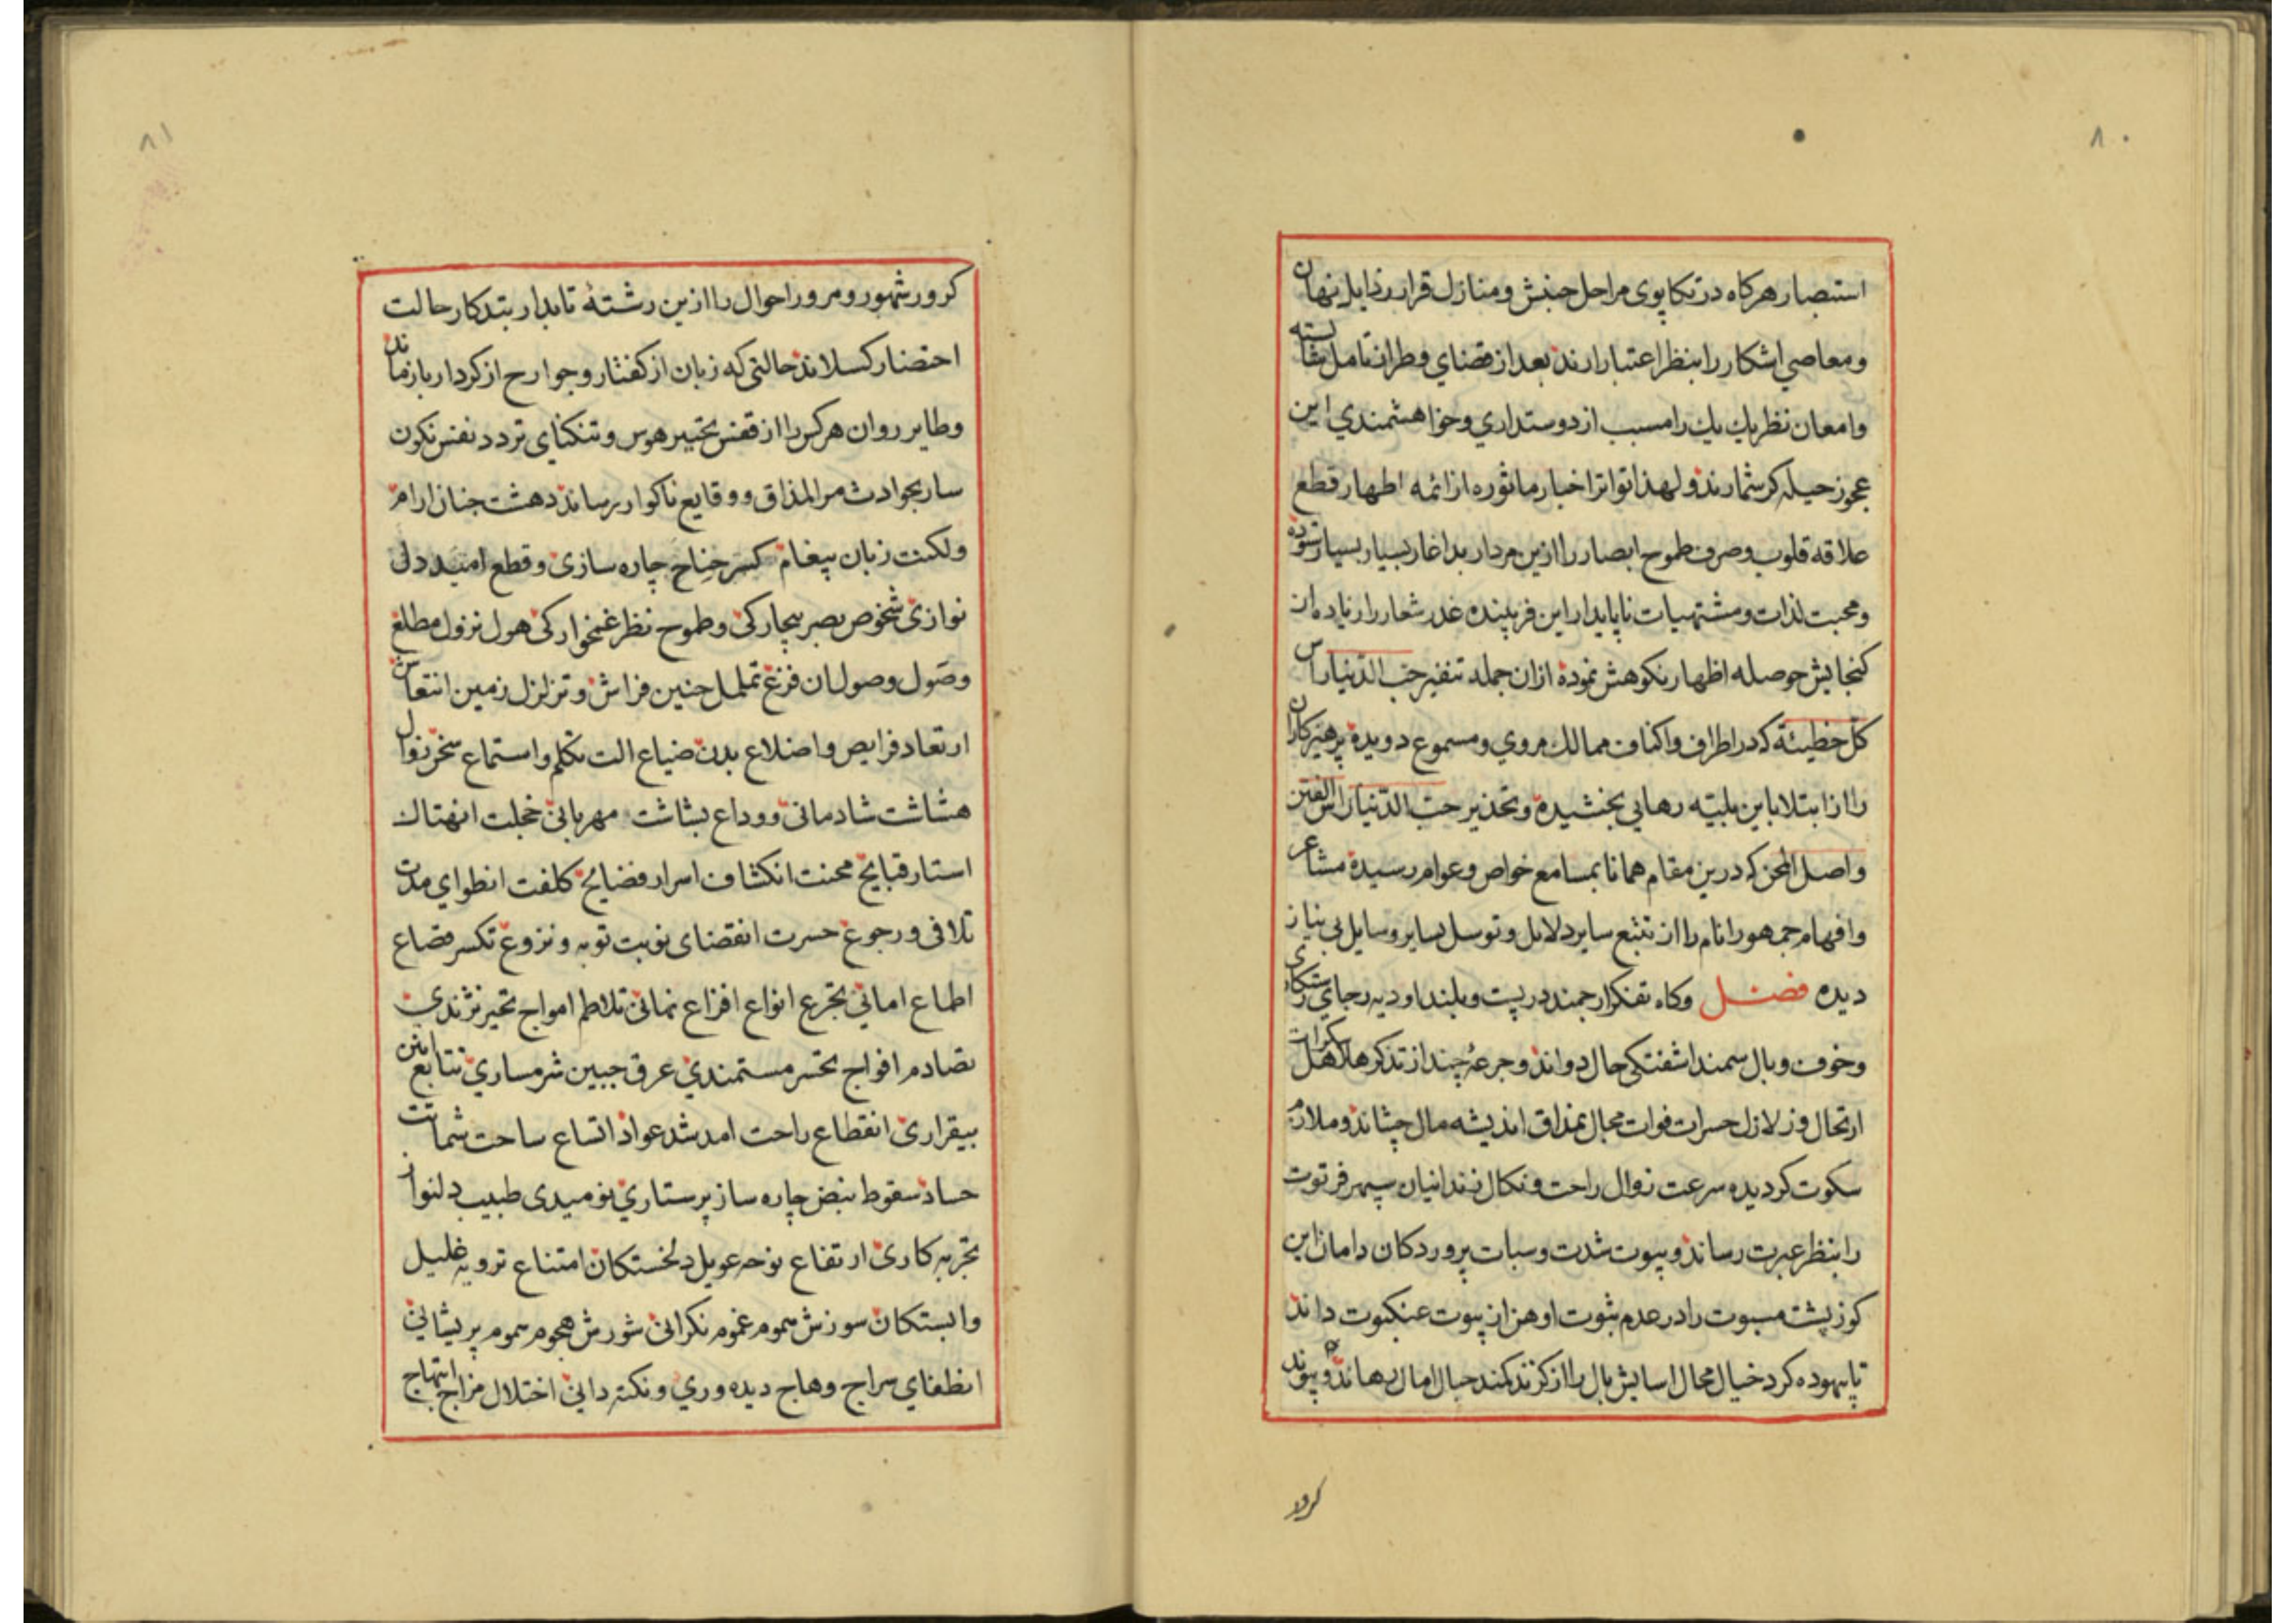 ۸۰
استبصار هرکاه در تکاپوی مراحل جنبش و منازل قرار رذایل نهان
و معاصی اشکار را بنظر اعتبار ارند بعد از قضای وطران تامل شایسته
و امعان نظر یك یك را مسبب از دوستداری و خواهشمندی این
عجوز حیله کر شمارند و لهذا تواتر اخبار ماثوره از ائمه اطهار قطع
علاقه قلوب و صرف طموح ابصار را ازین مردار بد اغار بسیار بسیار ستوده
و محبت لذات و مشتهیات ناپایدار این فریبنده غدر شعار را زیاده از
کنجایش حوصله اظهار نکوهش نموده ازان جمله تنفیر حب الدنیا راس
کل خطیئة که در اطراف و اکناف ممالك مروی و مسموع دویده پرهیزکاران
را از ابتلا باین بلیته رهایی بخشیده و تحذیر حب الدنیا راس الفتن
و اصل المحن که درین مقام همانا بمسامع خواص و عوام رسیده مشاعر
و افهام جمهور انام را از تتبع سایر دلایل و توسل بسایر وسایل بی نیاز
دیده فصل وکاه تفکر ارجمند در پست و بلند اودیه رجای رستکاری
و خوف و بال سمند اشفتکی حال دواند و جرعهٔ چند از تذکر هلاهل سکرات
ارتحال و زلازل حسرات فوات مجال بمذاق اندیشه مال چشاند و ملازم
سکوت کردیده سرعت زوال راحت و نکال زندانیان سپهر فرتوت
را بنظر عبرت رساند و بیوت شدت و سبات پروردکان دامان این
کوز پشت مسبوت را در عدم ثبوت اوهن از بیوت عنکبوت داند
تا بیهوده کرد خیال محال اسایش بال را از کزند کمند حبال امال رهاند و پیوند
کرور
۸۱
کرور شهور و مرور احوال را ازین رشتهٔ تابدار بتذکار حالت
احتضار کسلاند حالتی که زبان از کفتار و جوارح از کردار باز ماند
و طایر روان هرکس را از قفس تحییر هوس و تنکنای تردد نفس نکون
سار بحوادث مر المذاق و وقایع ناکوار رساند دهشت جنان ارام
و لکنت زبان پیغام کسر جناح چاره سازی و قطع امید دل
نوازی شخوص بصر بیچارکی و طموح نظر غمخوارکی هول نزول مطلع
و صول وصول ان فزع تململ حنین فراش و تزلزل زمین انتعاش
ارتعاد فرایص و اضلاع بدن ضیاع الت تکلم و استماع سخن زوال
هشاشت شادمانی و وداع بشاشت مهربانی خجلت انهتاك
استار قبایح محنت انکشاف اسرار فضایح کلفت انطوای مدت
تلافی و رجوع حسرت انقضای نوبت توبه و نزوع تکسر قصاع
اطماع امانی تجرع انواع افزاع نمانی تلاطم امواج تحیر نژندی
تصادم افواج تحسر مستمندی عرق جبین شرمساری تتابع انین
بیقراری انقطاع راحت امد شد عواد اتساع ساحت شماتت
حساد سقوط نبض چاره ساز پرستاری نومیدی طبیب دلنواز
تجربه کاری ارتفاع نوحه عویل دلخستکان امتناع ترویه غلیل
وابستکان سوزش سموم غموم نکرانی شورش هجوم سموم پریشانی
انطفای سراج وهاج دیده وری و نکته دانی اختلال مزاج ابتهاج